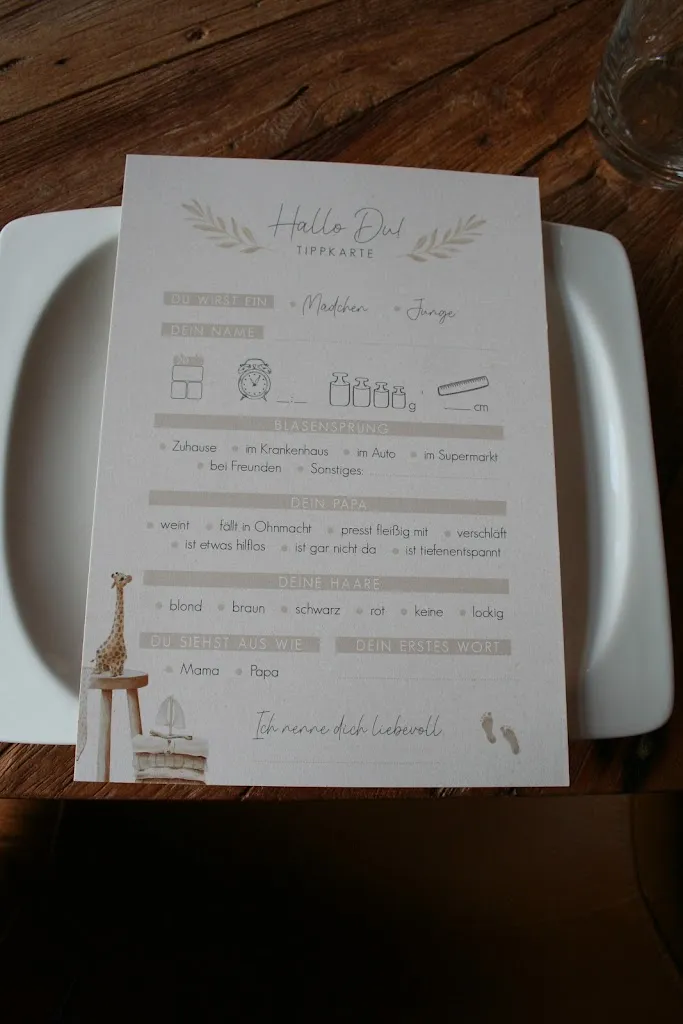 Hallo Du!
TIPPKARTE
DU WIRST EIN Mädchen Junge
DEIN NAME
__:__ g ___ cm
BLASENSPRUNG
Zuhause im Krankenhaus im Auto im Supermarkt
bei Freunden Sonstiges:
DEIN PAPA
weint fällt in Ohnmacht presst fleißig mit verschläft
ist etwas hilflos ist gar nicht da ist tiefenentspannt
DEINE HAARE
blond braun schwarz rot keine lockig
DU SIEHST AUS WIE DEIN ERSTES WORT
Mama Papa
Ich nenne dich liebevoll